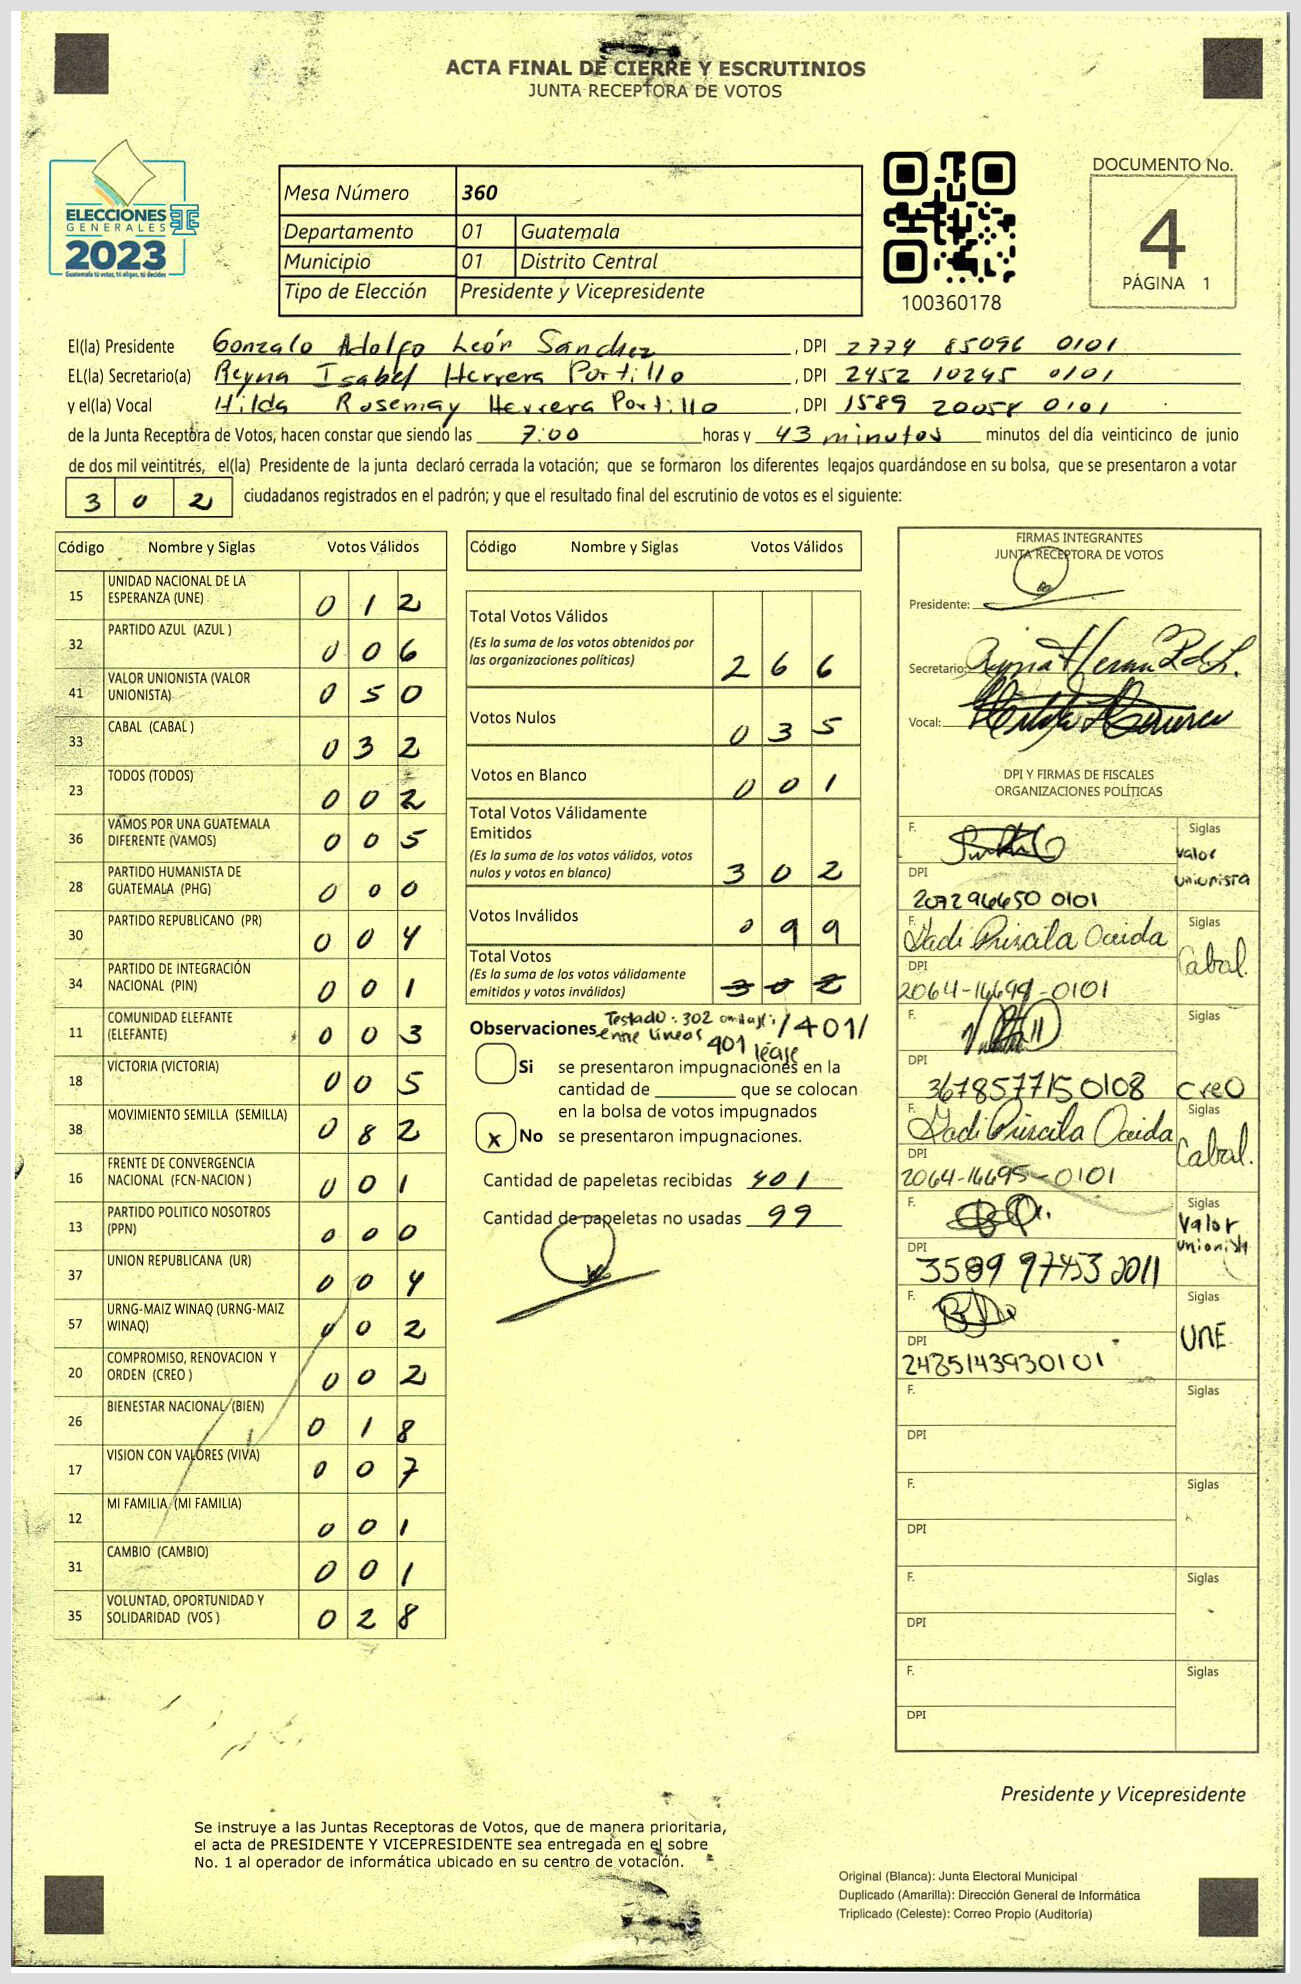 ACTA FINAL DE CIERRE Y ESCRUTINIOS
JUNTA RECEPTORA DE VOTOS
ELECCIONES
GENERALES
2023
Guatemala tú votas, tú eliges, tú decides
Mesa Número 360
Departamento 01 Guatemala
Municipio 01 Distrito Central
Tipo de Elección Presidente y Vicepresidente
100360178
DOCUMENTO No.
4
PÁGINA 1
El(la) Presidente Gonzalo Adolfo León Sánchez, DPI 2774 85096 0101
EL(la) Secretario(a) Reyna Isabel Herrera Portillo, DPI 2452 10245 0101
y el(la) Vocal Hilda Rosemay Herrera Portillo, DPI 1589 20058 0101
de la Junta Receptora de Votos, hacen constar que siendo las 7:00 horas y 43 minutos minutos del día veinticinco de junio
de dos mil veintitrés, el(la) Presidente de la junta declaró cerrada la votación; que se formaron los diferentes legajos guardándose en su bolsa, que se presentaron a votar
302 ciudadanos registrados en el padrón; y que el resultado final del escrutinio de votos es el siguiente:
Código Nombre y Siglas Votos Válidos
15 UNIDAD NACIONAL DE LA ESPERANZA (UNE) 012
32 PARTIDO AZUL (AZUL ) 006
41 VALOR UNIONISTA (VALOR UNIONISTA) 050
33 CABAL (CABAL ) 032
23 TODOS (TODOS) 002
36 VAMOS POR UNA GUATEMALA DIFERENTE (VAMOS) 005
28 PARTIDO HUMANISTA DE GUATEMALA (PHG) 000
30 PARTIDO REPUBLICANO (PR) 004
34 PARTIDO DE INTEGRACIÓN NACIONAL (PIN) 001
11 COMUNIDAD ELEFANTE (ELEFANTE) 003
18 VICTORIA (VICTORIA) 005
38 MOVIMIENTO SEMILLA (SEMILLA) 082
16 FRENTE DE CONVERGENCIA NACIONAL (FCN-NACION ) 001
13 PARTIDO POLITICO NOSOTROS (PPN) 000
37 UNION REPUBLICANA (UR) 004
57 URNG-MAIZ WINAQ (URNG-MAIZ WINAQ) 002
20 COMPROMISO, RENOVACION Y ORDEN (CREO ) 002
26 BIENESTAR NACIONAL (BIEN) 018
17 VISION CON VALORES (VIVA) 007
12 MI FAMILIA (MI FAMILIA) 001
31 CAMBIO (CAMBIO) 001
35 VOLUNTAD, OPORTUNIDAD Y SOLIDARIDAD (VOS ) 028
Código Nombre y Siglas Votos Válidos
Total Votos Válidos
(Es la suma de los votos obtenidos por las organizaciones políticas) 266
Votos Nulos 035
Votos en Blanco 001
Total Votos Válidamente Emitidos
(Es la suma de los votos válidos, votos nulos y votos en blanco) 302
Votos Inválidos 099
Total Votos
(Es la suma de los votos válidamente emitidos y votos inválidos) 302
Observaciones Testado: 302 /401/
entre lineas 401 léase
Si se presentaron impugnaciones en la
cantidad de que se colocan
en la bolsa de votos impugnados
x No se presentaron impugnaciones.
Cantidad de papeletas recibidas 401
Cantidad de papeletas no usadas 99
FIRMAS INTEGRANTES
JUNTA RECEPTORA DE VOTOS
Presidente:
Secretario:
Vocal:
DPI Y FIRMAS DE FISCALES
ORGANIZACIONES POLÍTICAS
F. Siglas Valor Unionista
DPI 2072 96650 0101
F. Siglas Cabal.
DPI 2064-16695-0101
F. Siglas CREO
DPI 3678577150108
F. Siglas Cabal.
DPI 2064-16695-0101
F. Siglas Valor Unionista
DPI 3589 97453 2011
F. Siglas UNE
DPI 2485143930101
F. Siglas
DPI
F. Siglas
DPI
F. Siglas
DPI
F. Siglas
DPI
Presidente y Vicepresidente
Se instruye a las Juntas Receptoras de Votos, que de manera prioritaria,
el acta de PRESIDENTE Y VICEPRESIDENTE sea entregada en el sobre
No. 1 al operador de informática ubicado en su centro de votación.
Original (Blanca): Junta Electoral Municipal
Duplicado (Amarilla): Dirección General de Informática
Triplicado (Celeste): Correo Propio (Auditoría)